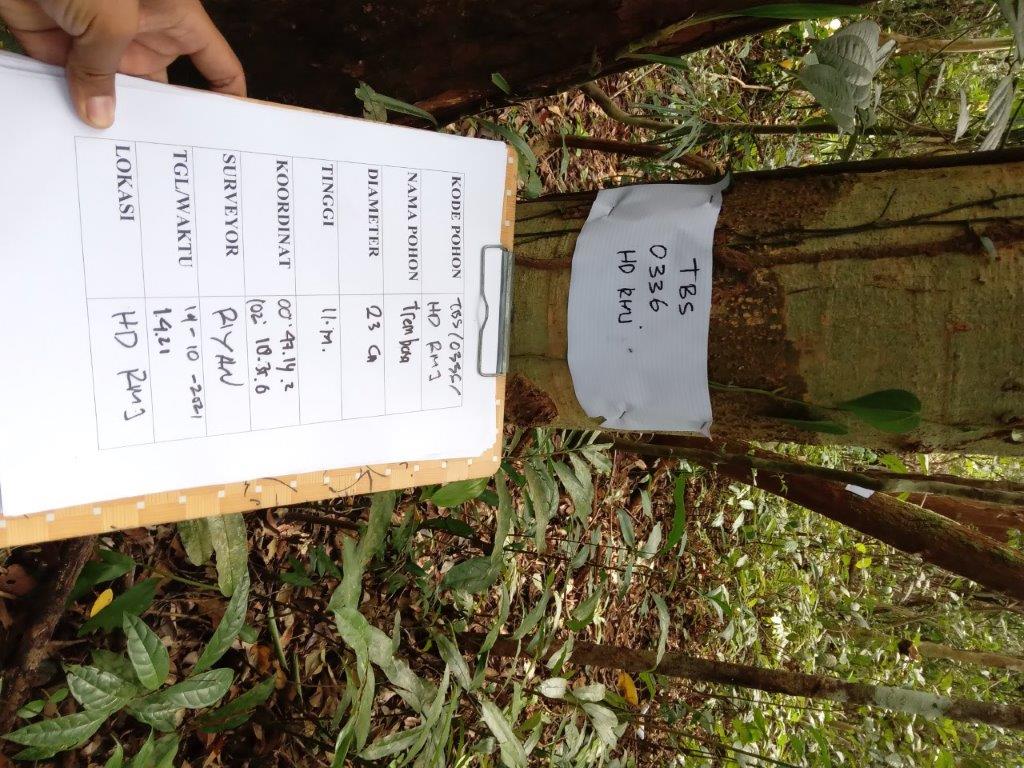 TBS
0336
HD RMJ
KODE POHON TBS/0336/
HD RMJ
NAMA POHON Trembosa
DIAMETER 23 Cm
TINGGI 11.M.
KOORDINAT 00°47.14.2
102° 10.35.6
SURVEYOR RIYAN
TGL/WAKTU 19-10-2021
14.21
LOKASI HD RMJ